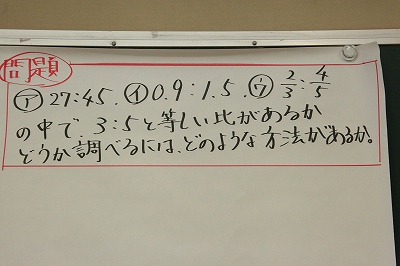 問題
㋐ 27:45. ㋑ 0.9:1.5. ㋒ 2/3:4/5
の中で、3:5と等しい比があるか
どうか調べるには、どのような方法があるか。